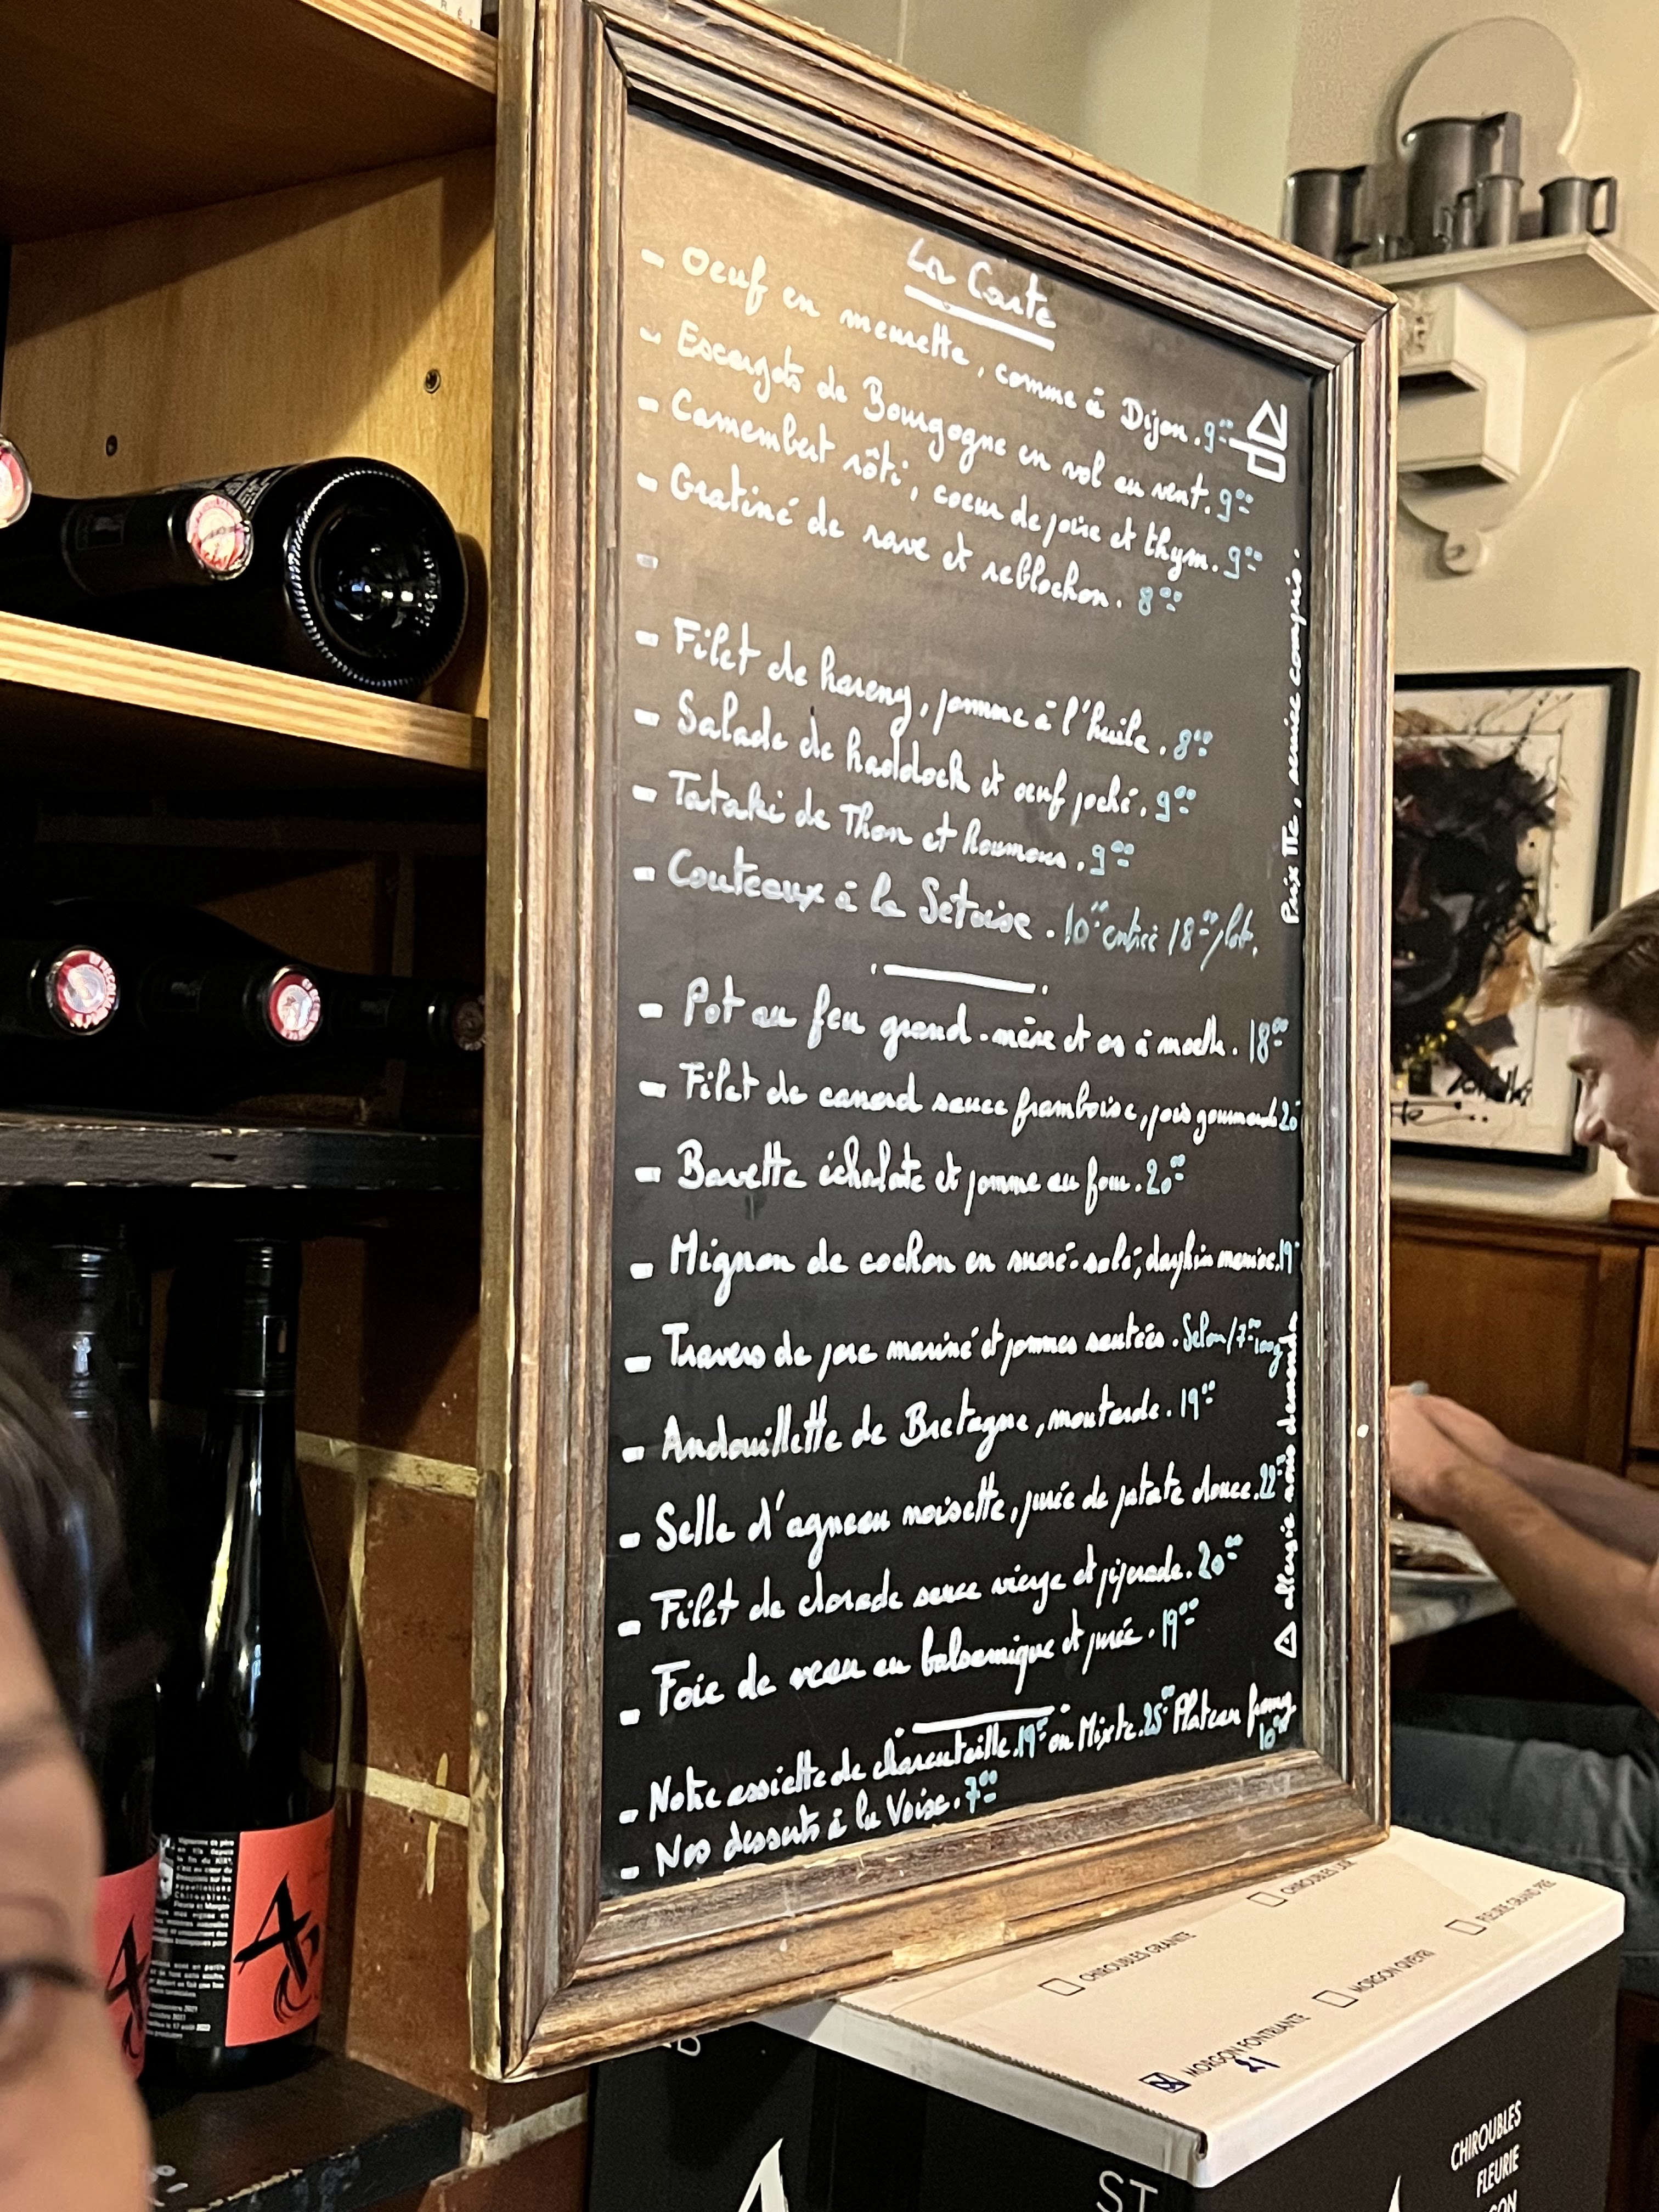 La Carte
- Oeuf en meurette, comme à Dijon. 9.00
- Escargots de Bourgogne en vol au vent. 9.00
- Camembert rôti, coeur de poire et thym. 9.00
- Gratiné de rave et reblochon. 8.00
-
- Filet de hareng, pomme à l'huile. 8.00
- Salade de haddock et oeuf poché. 9.00
- Tataki de Thon et houmous. 9.00
- Couteaux à la Setoise. 10.00 entrée 18.00 plat.
- Pot au feu grand-mère et os à moelle. 18.00
- Filet de canard sauce framboise, pois gourmands 20
- Bavette échalote et pomme au four. 20.00
- Mignon de cochon en sucré-salé, dauphin manioc. 19
- Travers de porc mariné et pommes sautées. Selon/7.00 100g
- Andouillette de Bretagne, moutarde. 19.00
- Selle d'agneau noisette, purée de patate douce. 22
- Filet de dorade sauce vierge et piperade. 20.00
- Foie de veau au balsamique et purée. 19.00
- Notre assiette de charcutaille. 19.00 ou Mixte. 25.00 Plateau fromg
10.00
- Nos desserts à la Voise. 7.00
Prix TTC, service compris.
⚠ allergie nous demander
CHIROUBLES GRANITE
MORGON FONTRIANTE
21
MORGON QVEVRI
FLEURIE GRAND PRÉ
CHIROUBLES
FLEURIE
ST